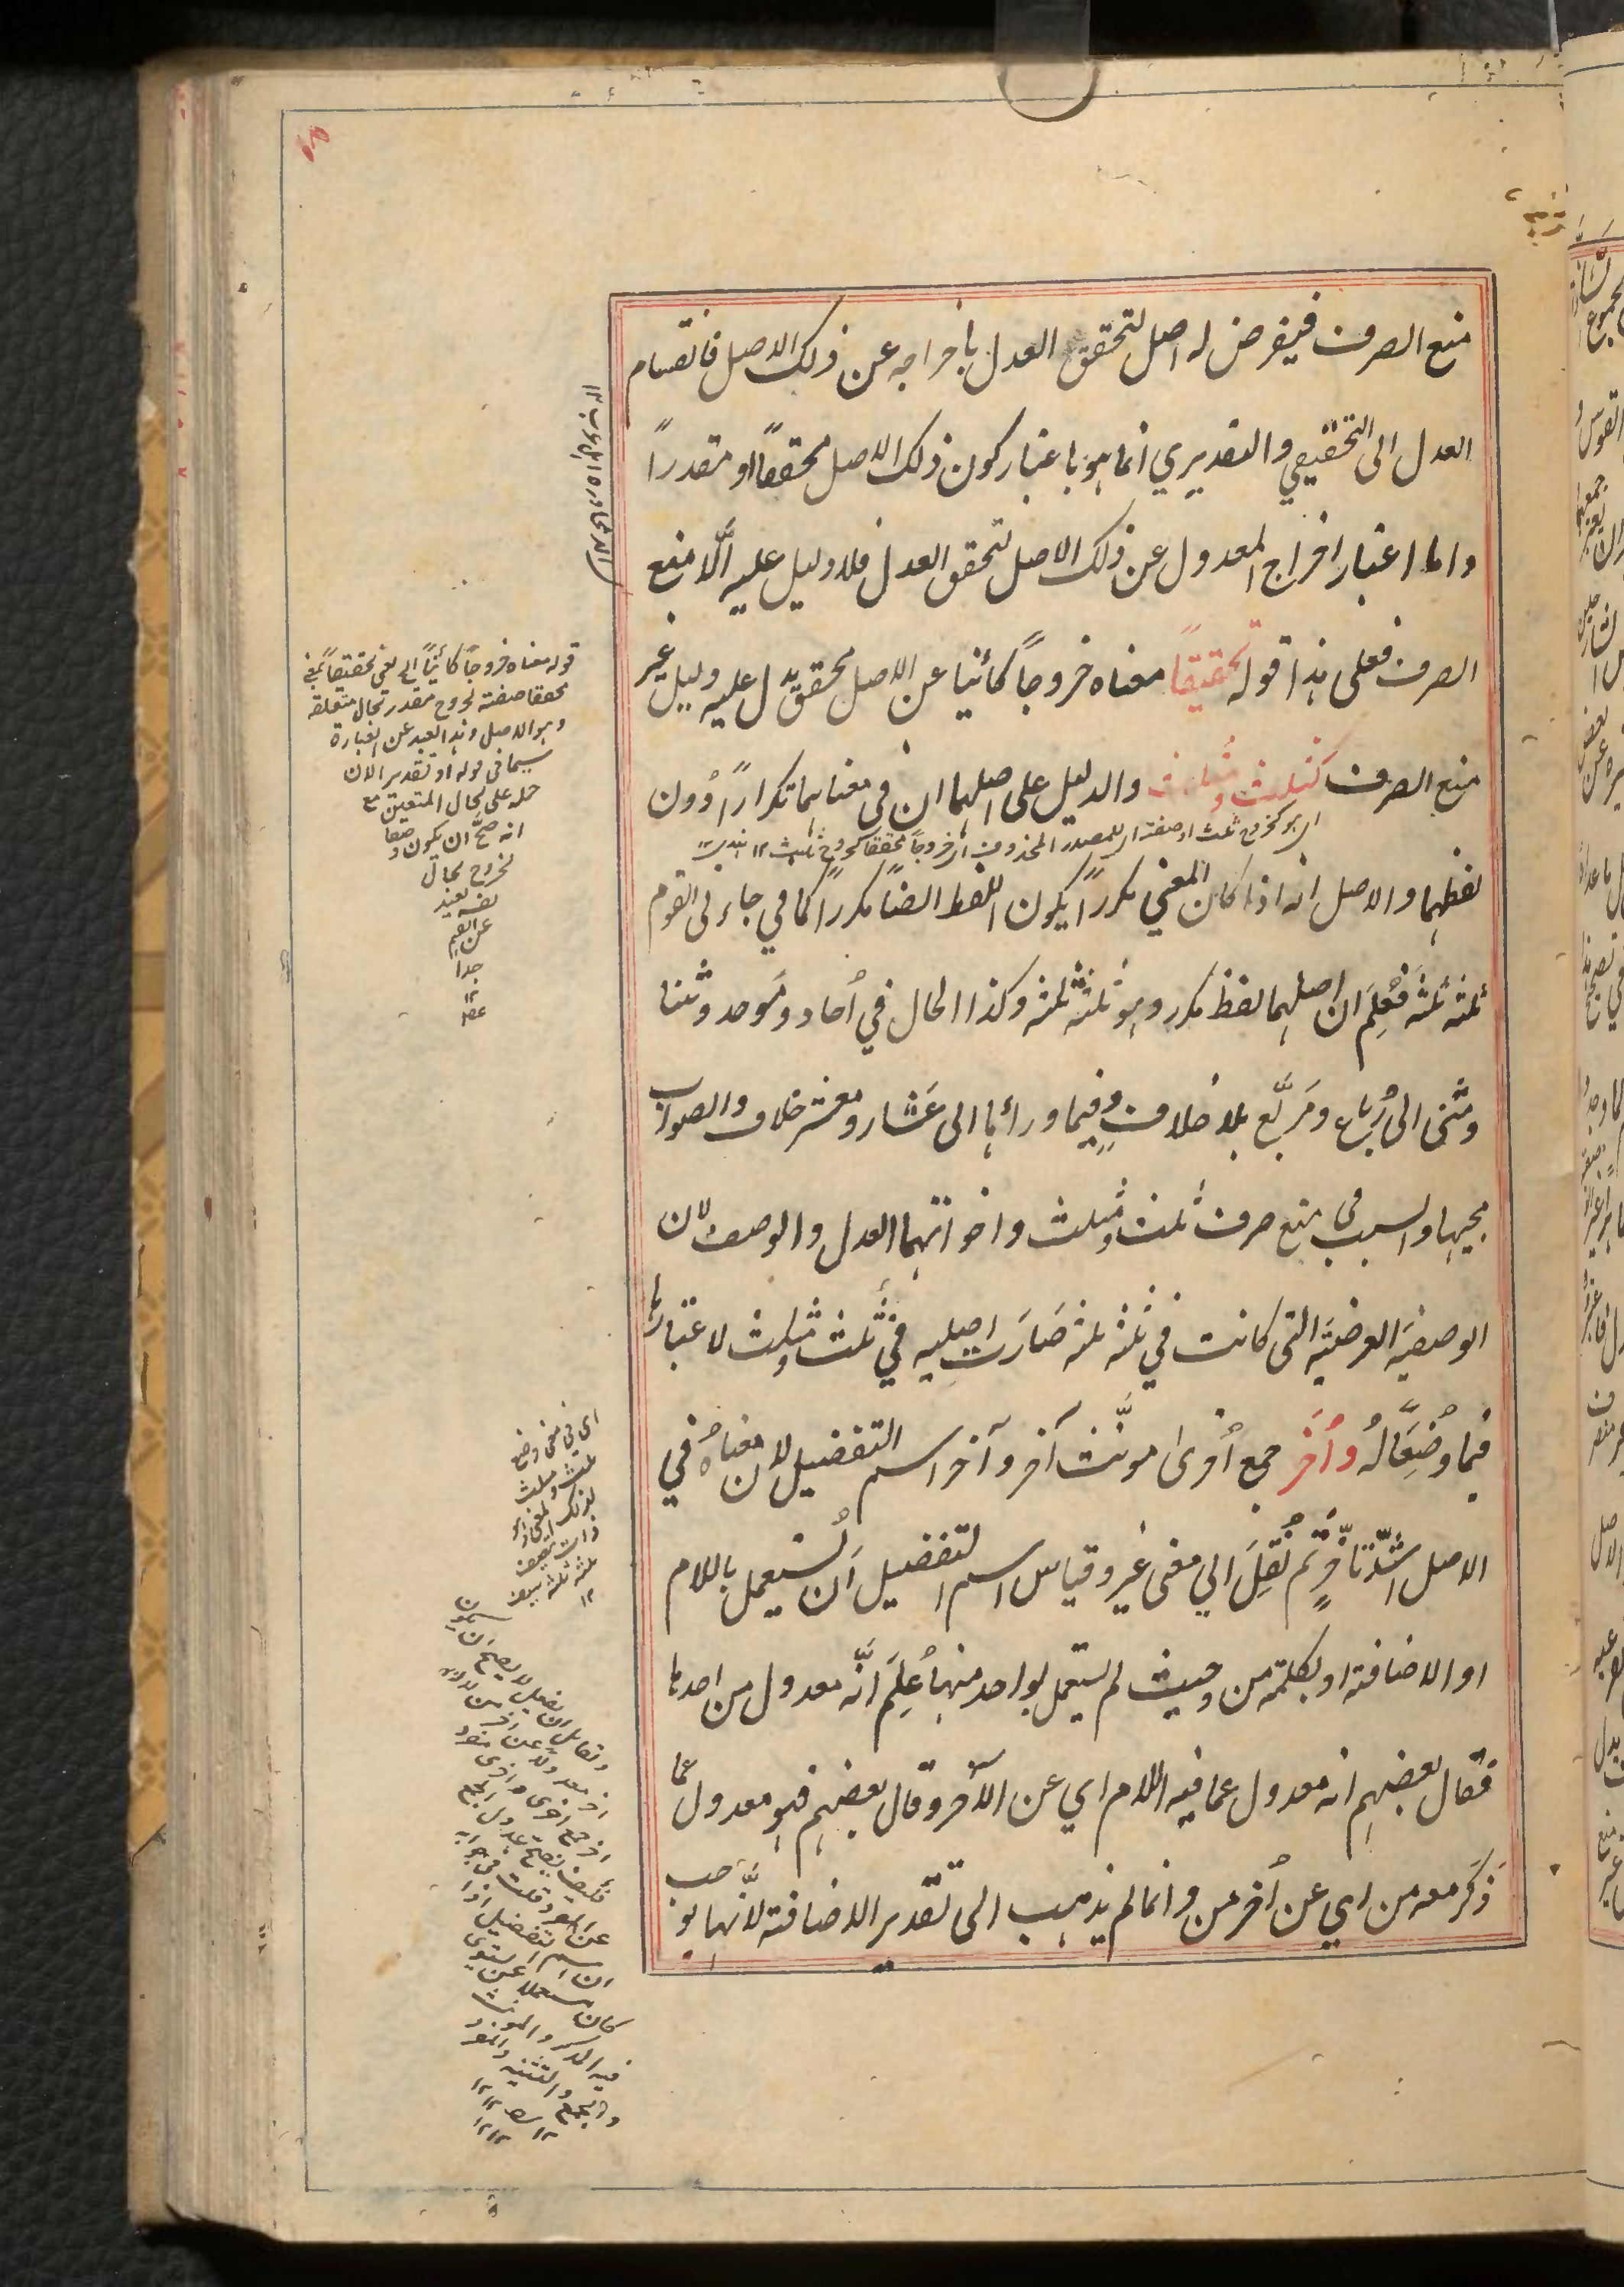 منع الصرف فيفرض له اصل لتحقق العدل باخراجه عن ذلك الاصل فانقسام
العدل الى التحقيقي والتقديري انما هو باعتبار كون ذلك الاصل محققاً او مقدراً
واما اعتبار اخراج المعدول عن ذلك الاصل لتحقق العدل فلا دليل عليه اِلَّا منع
الصرف فعلى هذا قوله تحقيقاً معناه خروجاً كائنا عن الاصل محقق يدل عليه دليل غير
منع الصرف كثلث ومثلث والدليل على اصلهما ان في معناهما تكراراً دُون
اى هو كخروج ثلث او صفته للمصدر المحذوف اى خروجاً محققا كخروج ثلث ١٢
لفظهما والاصل انه اذا كان المعنى مكرراً يكون اللفظ ايضًا مكرراً كما في جاءنى القوم
ثلثه ثلثه فَعُلِمَ ان اصلهما لفظ مكرر وهو ثلثه ثلثه وكذا الحال في اُحاد ومَوحد وثنا
ومثنى الى رُباع ومَربَّع بلا خلافٍ وفيما ورائها الى عُشار ومعشر خلاف والصواب
مجيها والسبب فى منع صرف ثلث ومثلث واخواتهما العدل والوصف لان
الوصفيَه العرضيَه التى كانت في ثلثه ثلثه صَارَت اصليه في ثلث ومثلث لاعتبارها
فيما وُضِعَا لهُ واُخَر جمع اُخرىٰ مونَّث آخر وآخر اسم التفضيل لان معناهُ في
الاصل اشدّ تاخّرٍ ثم نُقِلَ الي معنى غير وقياس اسم التفضيل اَن يُستعمل باللام
او الاضافة او بكلمة من وحيث لم يستعمل بواحد منها عُلِمَ انَّه معدول من احدها
فقال بعضهم انه معدول عما فيه اللام اي عن الآخر وقال بعضهم هو معدول عما
ذَكَر معه من اي عن اُخر من وانما لم يذهب الى تقدير الاضافة لانَّها توجب
قوله معناه خروجاً كائناً الخ يعنى تحقيقاً بمعنى
محققا صفته لخروج مقدر بحال متعلقه
وهو الاصل وهذا بعيد عن العبارة
سيما فى قوله او تقديرا لان
حمله على الحال المتعين مع
انه صحَّ ان يكون وصفا
لخروج بحال
نفسه بعيد
عن الفهم
جدا
١٢
اى فى معنى وضع
ثلث ومثلث
لذلك المعنى
ثلثه ثلثه
١٢
عن المعـ وقلت فى جوابه
ان اسم التفضيل اذا
كان مستعملا بمن يستوى
فيه المذكر والمونث
والمفرد
والتثنيه
والجمع
١٢